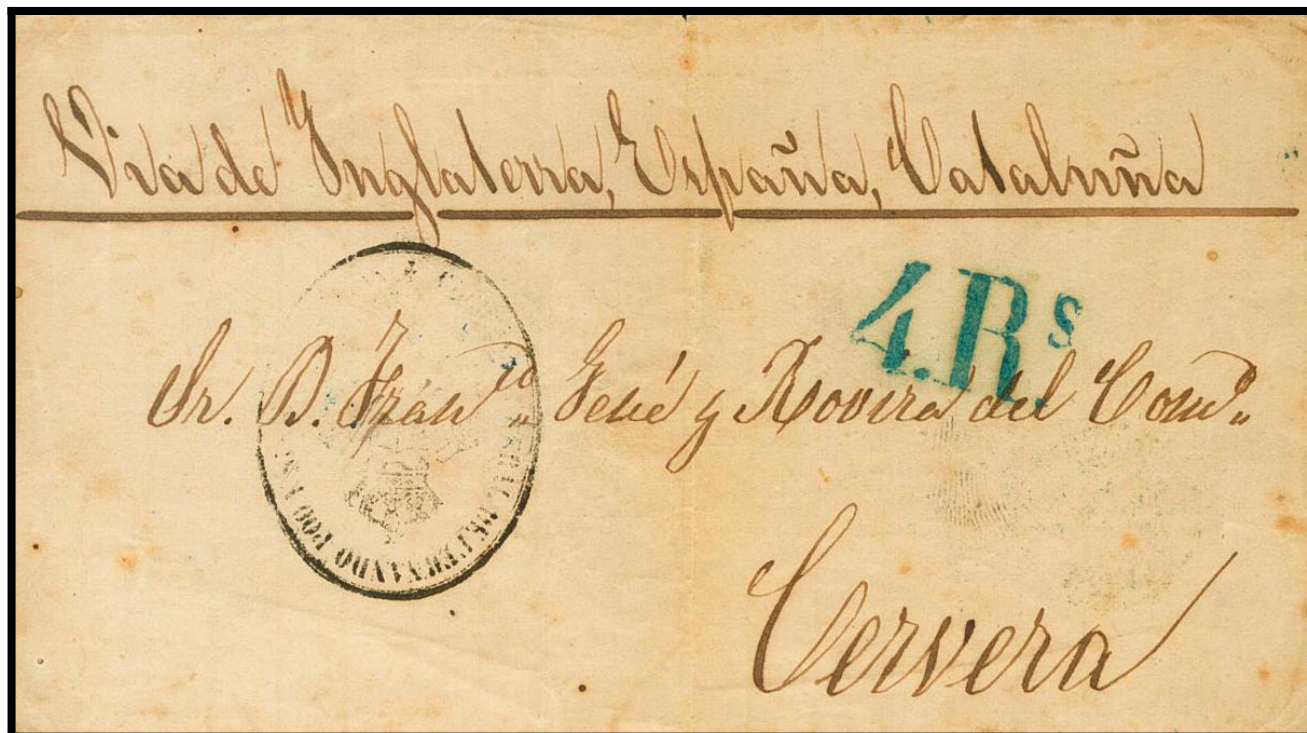 Via de Inglaterra, España, Cataluña
4.Rs.
Sr. D. Franco. Gené y Rovira del Como.
FERNANDO POO
Cervera